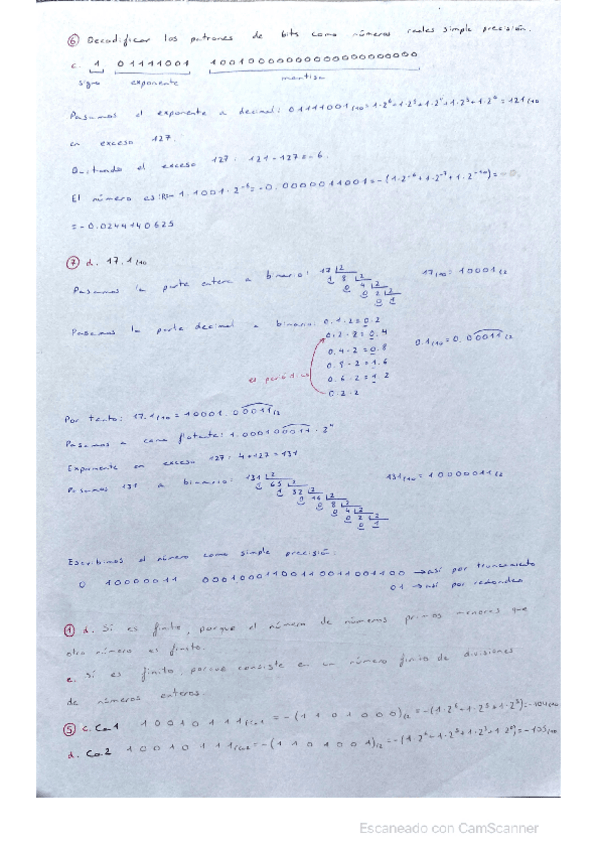 ⑥ Decodificar los patrones de bits como números reales simple precisión.
c. 1 01111001 10010000000000000000000
signo exponente mantisa
Pasamos el exponente a decimal: 01111001/10 = 1·2⁶+1·2⁵+1·2⁴+1·2³+1·2⁰ = 121/10
en exceso 127.
Quitando el exceso 127: 121-127=-6.
El número es: 1.1001·2⁻⁶ = -0.0000011001 = -(1·2⁻⁶+1·2⁻⁷+1·2⁻¹⁰) =
= -0.0244140625
⑦ d. 17.1/10
Pasamos la parte entera a binario: 17 2 1 8 2 0 4 2 0 2 2 0 1 17/10 = 10001/2
Pasamos la parte decimal a binario: 0.1·2=0.2
0.2·2=0.4
0.4·2=0.8 0.1/10=0.00011/2
0.8·2=1.6
es periódico 0.6·2=1.2
0.2·2
Por tanto: 17.1/10 = 10001.00011/2
Pasamos a coma flotante: 1.000100011·2⁴
Exponente en exceso 127: 4+127=131
Pasamos 131 a binario: 131 2 1 65 2 1 32 2 0 16 2 0 8 2 0 4 2 0 2 2 0 1 131/10 = 10000011/2
Escribimos el número como simple precisión:
0 10000011 00010001100110011001100 → así por truncamiento
01 → así por redondeo
① d. Sí es finito, porque el número de números primos menores que
otro número es finito.
e. Sí es finito, porque consiste en un número finito de divisiones
de números enteros.
⑤ c. Ca.1 10010111/Ca1 = -(1101000)/2 = -(1·2⁶+1·2⁵+1·2³) = -104/10
d. Ca.2 10010111/Ca2 = -(1101001)/2 = -(1·2⁶+1·2⁵+1·2³+1·2⁰) = -105/10
Escaneado con CamScanner